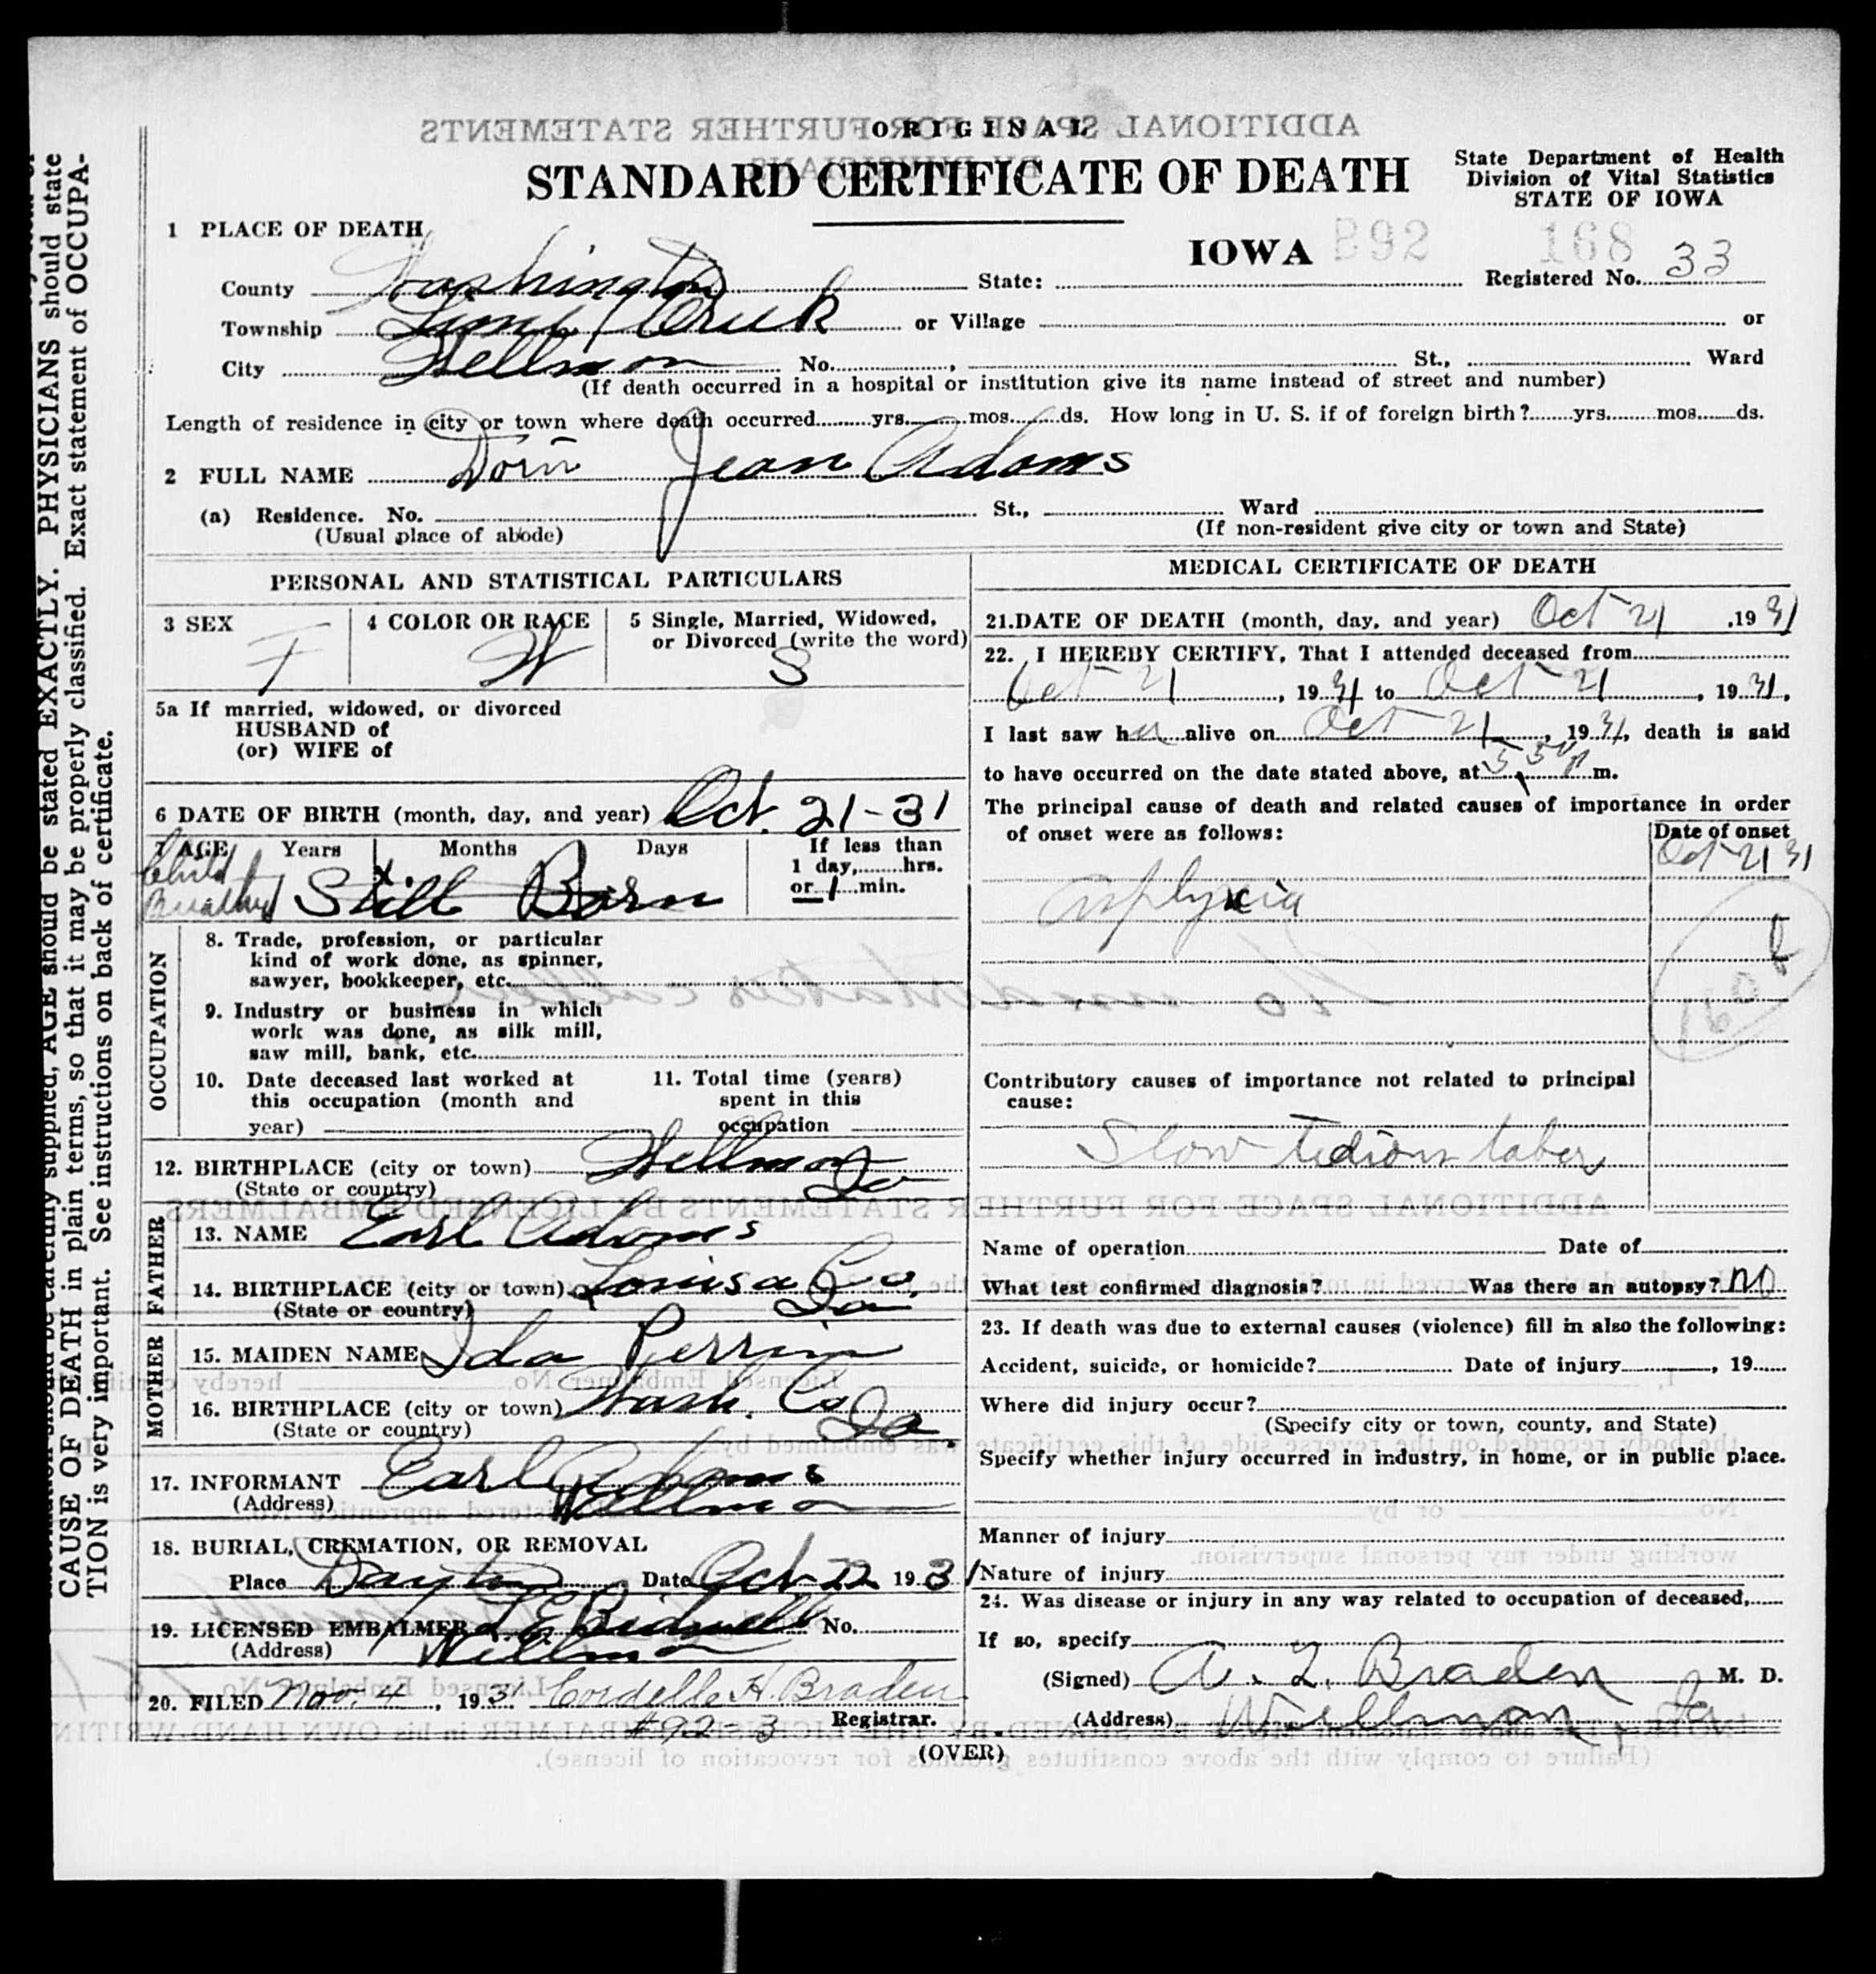 ORIGINAL
STANDARD CERTIFICATE OF DEATH
State Department of Health
Division of Vital Statistics
STATE OF IOWA
1 PLACE OF DEATH
IOWA B92 168
County Washington State: Registered No. 33
Township Lime Creek or Village or
City Wellman No. , St., Ward
(If death occurred in a hospital or institution give its name instead of street and number)
Length of residence in city or town where death occurred yrs. mos. ds. How long in U. S. if of foreign birth? yrs. mos. ds.
2 FULL NAME Jean Adams
(a) Residence. No. St., Ward
(Usual place of abode) (If non-resident give city or town and State)
PERSONAL AND STATISTICAL PARTICULARS
3 SEX F
4 COLOR OR RACE W
5 Single, Married, Widowed,
or Divorced (write the word)
S
5a If married, widowed, or divorced
HUSBAND of
(or) WIFE of
6 DATE OF BIRTH (month, day, and year) Oct. 21-31
7 AGE Years Months Days If less than
1 day, hrs.
or 1 min.
Child
Breathed Still Born
OCCUPATION
8. Trade, profession, or particular
kind of work done, as spinner,
sawyer, bookkeeper, etc.
9. Industry or business in which
work was done, as silk mill,
saw mill, bank, etc.
10. Date deceased last worked at
this occupation (month and
year)
11. Total time (years)
spent in this
occupation
12. BIRTHPLACE (city or town) Wellman
(State or country) Ia
FATHER
13. NAME Earl Adams
14. BIRTHPLACE (city or town) Louisa Co.
(State or country) Ia
MOTHER
15. MAIDEN NAME Ida Perrin
16. BIRTHPLACE (city or town) Wash. Co
(State or country) Ia.
17. INFORMANT Earl Adams
(Address) Wellman
18. BURIAL, CREMATION, OR REMOVAL
Place Dayton Date Oct 22 1931
19. LICENSED EMBALMER L E Bidwell No.
(Address) Wellman
20. FILED Nov. 4, 1931 Cordelle H. Braden
#92-3 Registrar.
MEDICAL CERTIFICATE OF DEATH
21. DATE OF DEATH (month, day, and year) Oct 21, 1931
22. I HEREBY CERTIFY, That I attended deceased from
Oct 21, 1931 to Oct 21, 1931,
I last saw her alive on Oct 21, 1931, death is said
to have occurred on the date stated above, at m.
The principal cause of death and related causes of importance in order
of onset were as follows:
Date of onset
Oct 21 31
Asphyxia
Contributory causes of importance not related to principal
cause:
Slow tedious labor
Name of operation Date of
What test confirmed diagnosis? Was there an autopsy? no
23. If death was due to external causes (violence) fill in also the following:
Accident, suicide, or homicide? Date of injury , 19
Where did injury occur?
(Specify city or town, county, and State)
Specify whether injury occurred in industry, in home, or in public place.
Manner of injury
Nature of injury
24. Was disease or injury in any way related to occupation of deceased,
If so, specify
(Signed) A. L. Braden M. D.
(Address) Wellman, Ia
(OVER)
CAUSE OF DEATH in plain terms, so that it may be properly classified. Exact statement of OCCUPA-
TION is very important. See instructions on back of certificate.
AGE should be stated EXACTLY. PHYSICIANS should state